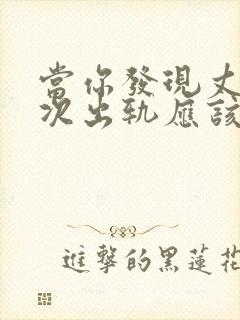 當你發現丈
次出軌應該
進擊的黑蓮花